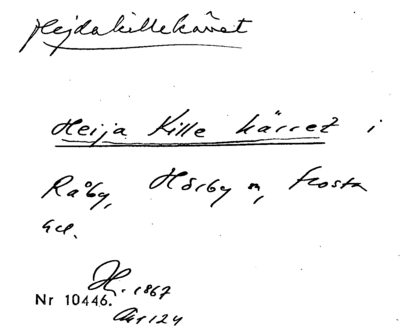 Hejdakillekärret
Heija Kille kärret i
Råby, Hörby sn, Frosta
hd.
H. 1867
Nr 10446.
124